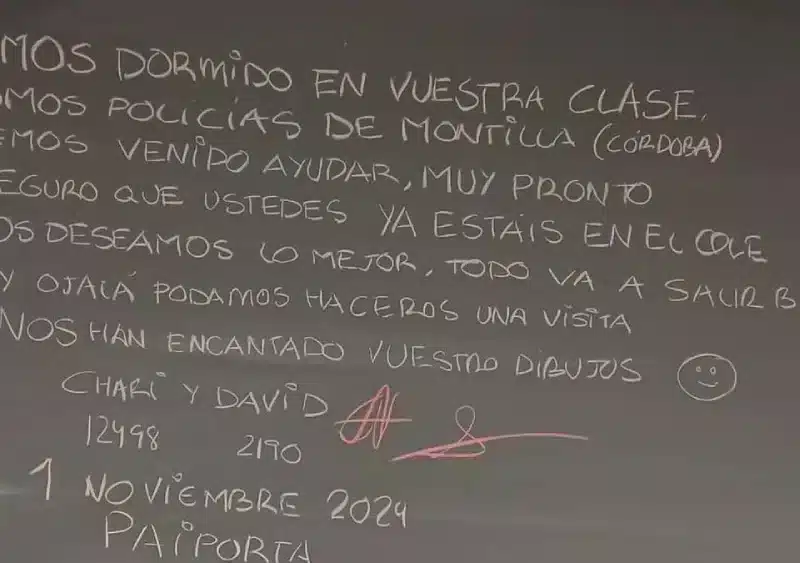 MOS DORMIDO EN VUESTRA CLASE.
OMOS POLICÍAS DE MONTILLA (CÓRDOBA)
EMOS VENIDO AYUDAR, MUY PRONTO
EGURO QUE USTEDES YA ESTÁIS EN EL COLE
OS DESEAMOS LO MEJOR, TODO VA A SALIR B
Y OJALÁ PODAMOS HACEROS UNA VISITA
NOS HAN ENCANTADO VUESTRO DIBUJOS
CHARI Y DAVID
12498 2190
1 NOVIEMBRE 2024
PAIPORTA